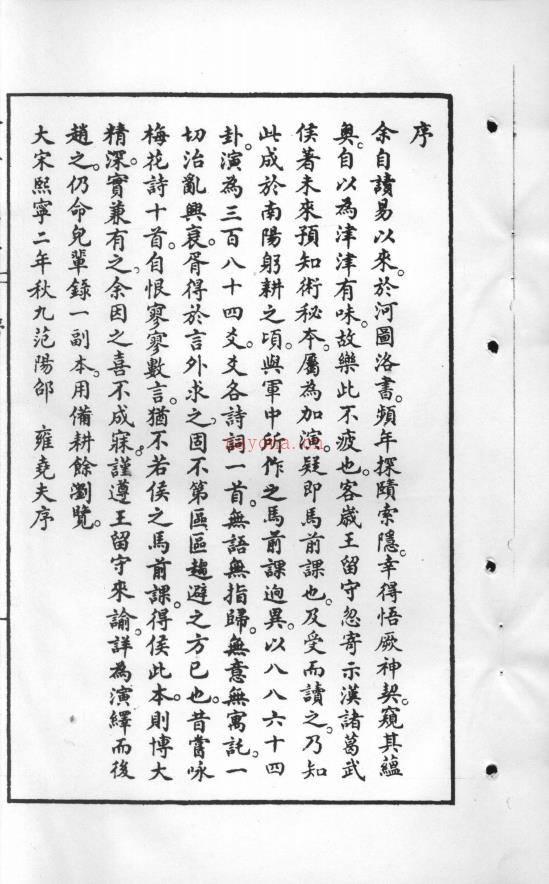 序
余自讀易以來。於河圖洛書。頻年探賾索隱。幸得悟厥神契。窺其蘊
奧。自以為津津有味。故樂此不疲也。客歲王留守忽寄示漢諸葛武
侯著未來預知術秘夲。屬為加演。疑即馬前課也。及受而讀之。乃知
此成於南陽躬耕之頃。與軍中所作之馬前課迥異。以八八六十四
卦。演為三百八十四爻。爻各詩詞一首。無語無指歸。無意無寓託。一
切治亂興衰。胥得於言外求之。固不第區區趨避之方已也。昔嘗咏
梅花詩十首。自恨寥寥數言。猶不若侯之馬前課。得侯此本。則博大
精深。實兼有之。余因之喜不成寐。謹遵王留守來諭。詳為演繹而後
趙之。仍命兒輩錄一副本。用備耕餘瀏覽。
大宋熙寧二年秋九范陽邵　雍堯夫序
nayona.cn